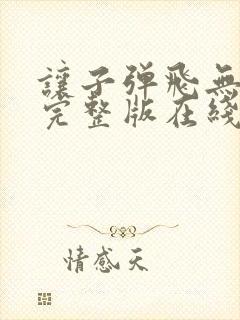 讓子弹飛無
完整版在綫
情感天